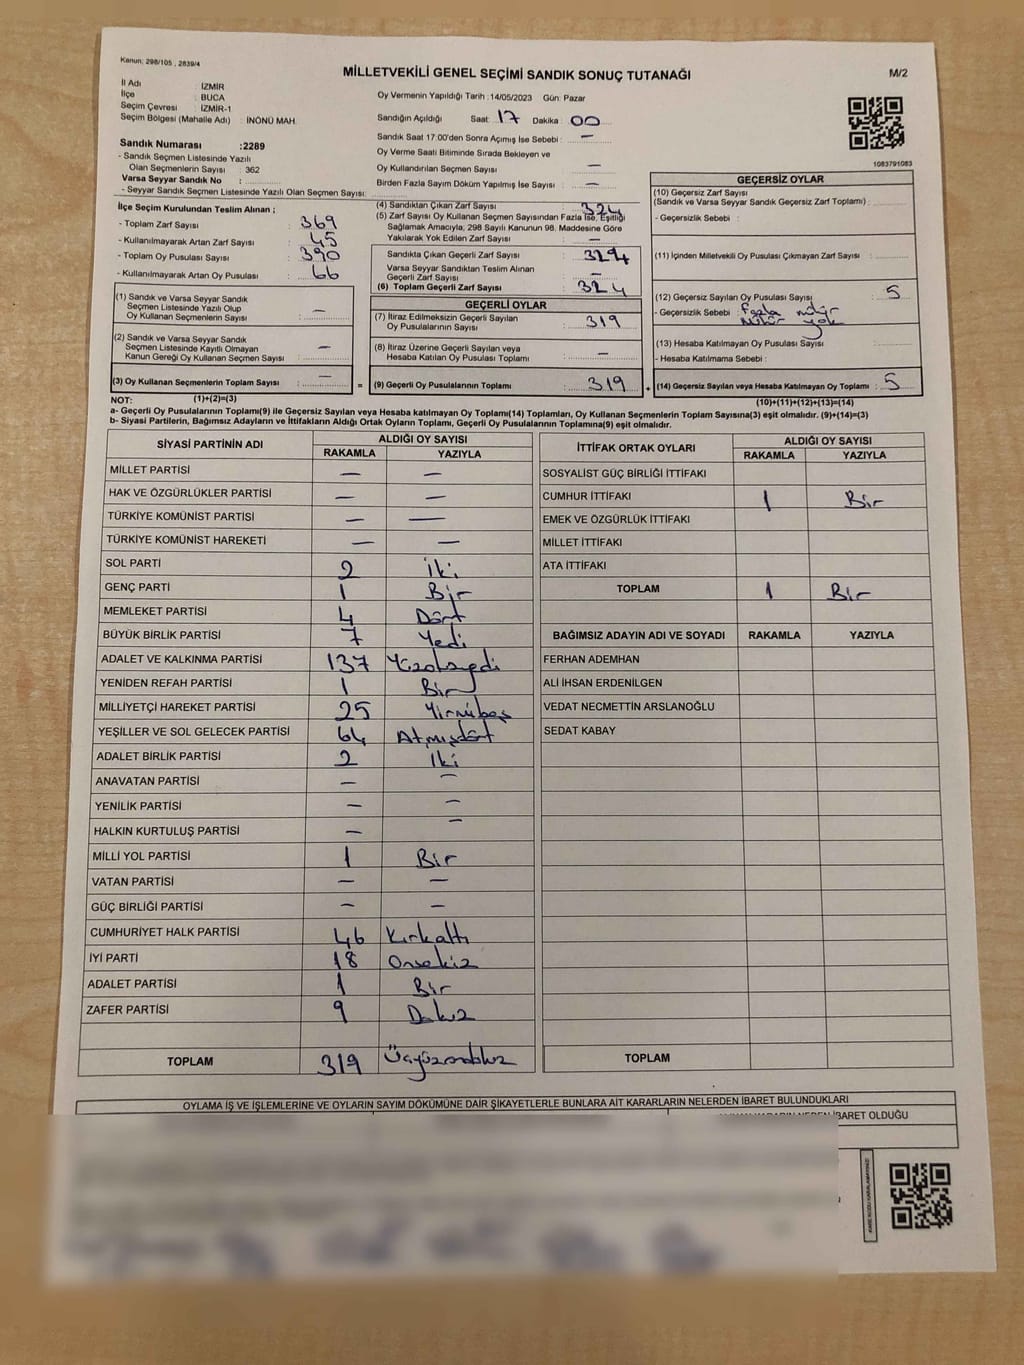 Kanun: 298/105 , 2839/4
MİLLETVEKİLİ GENEL SEÇİMİ SANDIK SONUÇ TUTANAĞI
M/2
İl Adı : İZMİR
İlçe : BUCA
Seçim Çevresi : İZMİR-1
Seçim Bölgesi (Mahalle Adı) : İNÖNÜ MAH.
Oy Vermenin Yapıldığı Tarih :14/05/2023 Gün: Pazar
Sandığın Açıldığı Saat: 17 Dakika: 00
Sandık Saat 17:00'den Sonra Açımış İse Sebebi : —
Oy Verme Saati Bitiminde Sırada Bekleyen ve
Oy Kullandırılan Seçmen Sayısı : —
Birden Fazla Sayım Döküm Yapılmış İse Sayısı : —
1083791083
Sandık Numarası :2289
- Sandık Seçmen Listesinde Yazılı
Olan Seçmenlerin Sayısı : 362
Varsa Seyyar Sandık No :
- Seyyar Sandık Seçmen Listesinde Yazılı Olan Seçmen Sayısı:
İlçe Seçim Kurulundan Teslim Alınan ;
- Toplam Zarf Sayısı : 369
- Kullanılmayarak Artan Zarf Sayısı : 45
- Toplam Oy Pusulası Sayısı : 390
- Kullanılmayarak Artan Oy Pusulası : 66
(1) Sandık ve Varsa Seyyar Sandık
Seçmen Listesinde Yazılı Olup
Oy Kullanan Seçmenlerin Sayısı : —
(2) Sandık ve Varsa Seyyar Sandık
Seçmen Listesinde Kayıtlı Olmayan
Kanun Gereği Oy Kullanan Seçmen Sayısı : —
(3) Oy Kullanan Seçmenlerin Toplam Sayısı : —
(4) Sandıktan Çıkan Zarf Sayısı : 324
(5) Zarf Sayısı Oy Kullanan Seçmen Sayısından Fazla İse, Eşitliği
Sağlamak Amacıyla, 298 Sayılı Kanunun 98. Maddesine Göre
Yakılarak Yok Edilen Zarf Sayısı : —
Sandıkta Çıkan Geçerli Zarf Sayısı : 324
Varsa Seyyar Sandıktan Teslim Alınan
Geçerli Zarf Sayısı : —
(6) Toplam Geçerli Zarf Sayısı : 324
GEÇERLİ OYLAR
(7) İtiraz Edilmeksizin Geçerli Sayılan
Oy Pusulalarının Sayısı : 319
(8) İtiraz Üzerine Geçerli Sayılan veya
Hesaba Katılan Oy Pusulası Toplamı : —
= (9) Geçerli Oy Pusulalarının Toplamı : 319
GEÇERSİZ OYLAR
(10) Geçersiz Zarf Sayısı
(Sandık ve Varsa Seyyar Sandık Geçersiz Zarf Toplamı) :
- Geçersizlik Sebebi :
(11) İçinden Milletvekili Oy Pusulası Çıkmayan Zarf Sayısı :
(12) Geçersiz Sayılan Oy Pusulası Sayısı : 5
- Geçersizlik Sebebi : Fazla mühür
Mühür yok
(13) Hesaba Katılmayan Oy Pusulası Sayısı :
- Hesaba Katılmama Sebebi :
+ (14) Geçersiz Sayılan veya Hesaba Katılmayan Oy Toplamı : 5
NOT: (1)+(2)=(3)
(10)+(11)+(12)+(13)=(14)
a- Geçerli Oy Pusulalarının Toplamı(9) ile Geçersiz Sayılan veya Hesaba katılmayan Oy Toplamı(14) Toplamları, Oy Kullanan Seçmenlerin Toplam Sayısına(3) eşit olmalıdır. (9)+(14)=(3)
b- Siyasi Partilerin, Bağımsız Adayların ve İttifakların Aldığı Ortak Oyların Toplamı, Geçerli Oy Pusulalarının Toplamına(9) eşit olmalıdır.
SİYASİ PARTİNİN ADI ALDIĞI OY SAYISI
RAKAMLA YAZIYLA
MİLLET PARTİSİ — —
HAK VE ÖZGÜRLÜKLER PARTİSİ — —
TÜRKİYE KOMÜNİST PARTİSİ — —
TÜRKİYE KOMÜNİST HAREKETİ — —
SOL PARTİ 2 İki
GENÇ PARTİ 1 Bir
MEMLEKET PARTİSİ 4 Dört
BÜYÜK BİRLİK PARTİSİ 7 Yedi
ADALET VE KALKINMA PARTİSİ 137 Yüzotuzyedi
YENİDEN REFAH PARTİSİ 1 Bir
MİLLİYETÇİ HAREKET PARTİSİ 25 Yirmibeş
YEŞİLLER VE SOL GELECEK PARTİSİ 64 Atmışdört
ADALET BİRLİK PARTİSİ 2 İki
ANAVATAN PARTİSİ — —
YENİLİK PARTİSİ — —
HALKIN KURTULUŞ PARTİSİ — —
MİLLİ YOL PARTİSİ 1 Bir
VATAN PARTİSİ — —
GÜÇ BİRLİĞİ PARTİSİ — —
CUMHURİYET HALK PARTİSİ 46 Kırkaltı
İYİ PARTİ 18 Onsekiz
ADALET PARTİSİ 1 Bir
ZAFER PARTİSİ 9 Dokuz
TOPLAM 319 Üçyüzondokuz
İTTİFAK ORTAK OYLARI ALDIĞI OY SAYISI
RAKAMLA YAZIYLA
SOSYALİST GÜÇ BİRLİĞİ İTTİFAKI
CUMHUR İTTİFAKI 1 Bir
EMEK VE ÖZGÜRLÜK İTTİFAKI
MİLLET İTTİFAKI
ATA İTTİFAKI
TOPLAM 1 Bir
BAĞIMSIZ ADAYIN ADI VE SOYADI RAKAMLA YAZIYLA
FERHAN ADEMHAN
ALİ İHSAN ERDENİLGEN
VEDAT NECMETTİN ARSLANOĞLU
SEDAT KABAY
TOPLAM
OYLAMA İŞ VE İŞLEMLERİNE VE OYLARIN SAYIM DÖKÜMÜNE DAİR ŞİKAYETLERLE BUNLARA AİT KARARLARIN NELERDEN İBARET BULUNDUKLARI
İBARET OLDUĞU